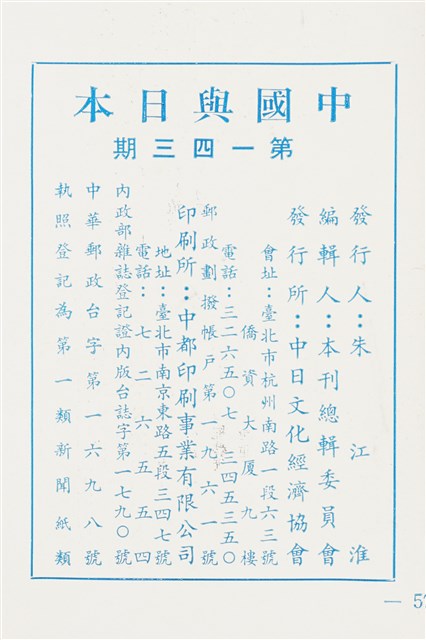 中國與日本
第一四三期
發行人：朱江淮
編輯人：本刊總輯委員會
發行所：中日文化經濟協會
會址：臺北市杭州南路一段六三號
僑資大厦九樓
電話：三二六五〇七 三四五三五〇
郵政劃撥帳戶第一九六一號
印刷所：中都印刷事業有限公司
地址：臺北市南京東路五段三四七號
電話：七二六五五四
內政部雜誌登記證內版台誌字第一七九〇號
中華郵政台字第一六九八號
執照登記為第一類新聞紙類